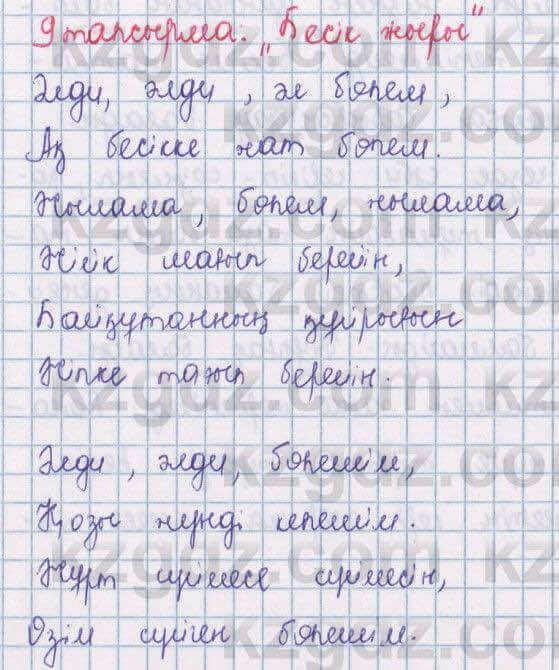 9 тапсырма. „Бесік жыры"
Әлди, әлди, ақ бөпем,
Ақ бесікке жат бөпем.
Жылама, бөпем, жылама,
Жілік шағып берейін,
Байқұтанның құйрығын
Жіпке тағып берейін.
Әлди, әлди, бөпешім,
Қозы жүнді көпешім.
Жұрт сүймесе сүймесін,
Өзім сүйген бөпешім.